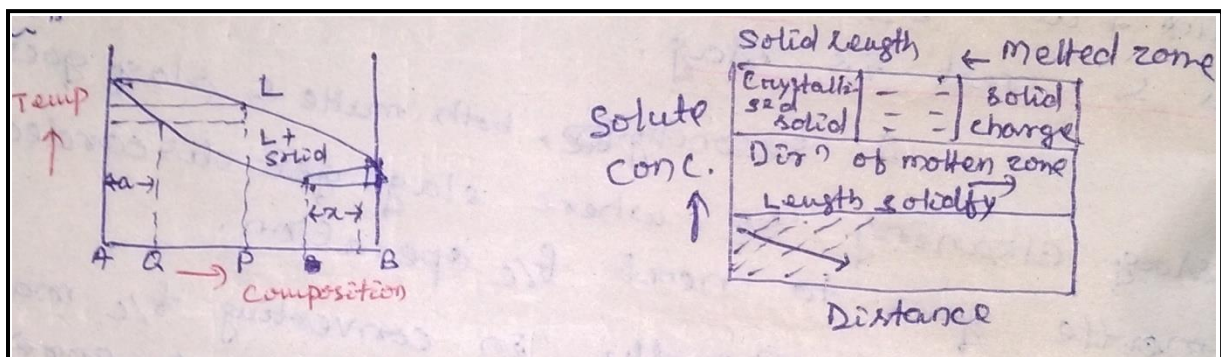 Temp
L
L+
solid
a
x
A
Q
P
B
Composition
Solid Length
← Melted zone
Solute
conc.
Crystalli-
sed
solid
solid
charge
Dirn of molten zone
Length solidify
Distance